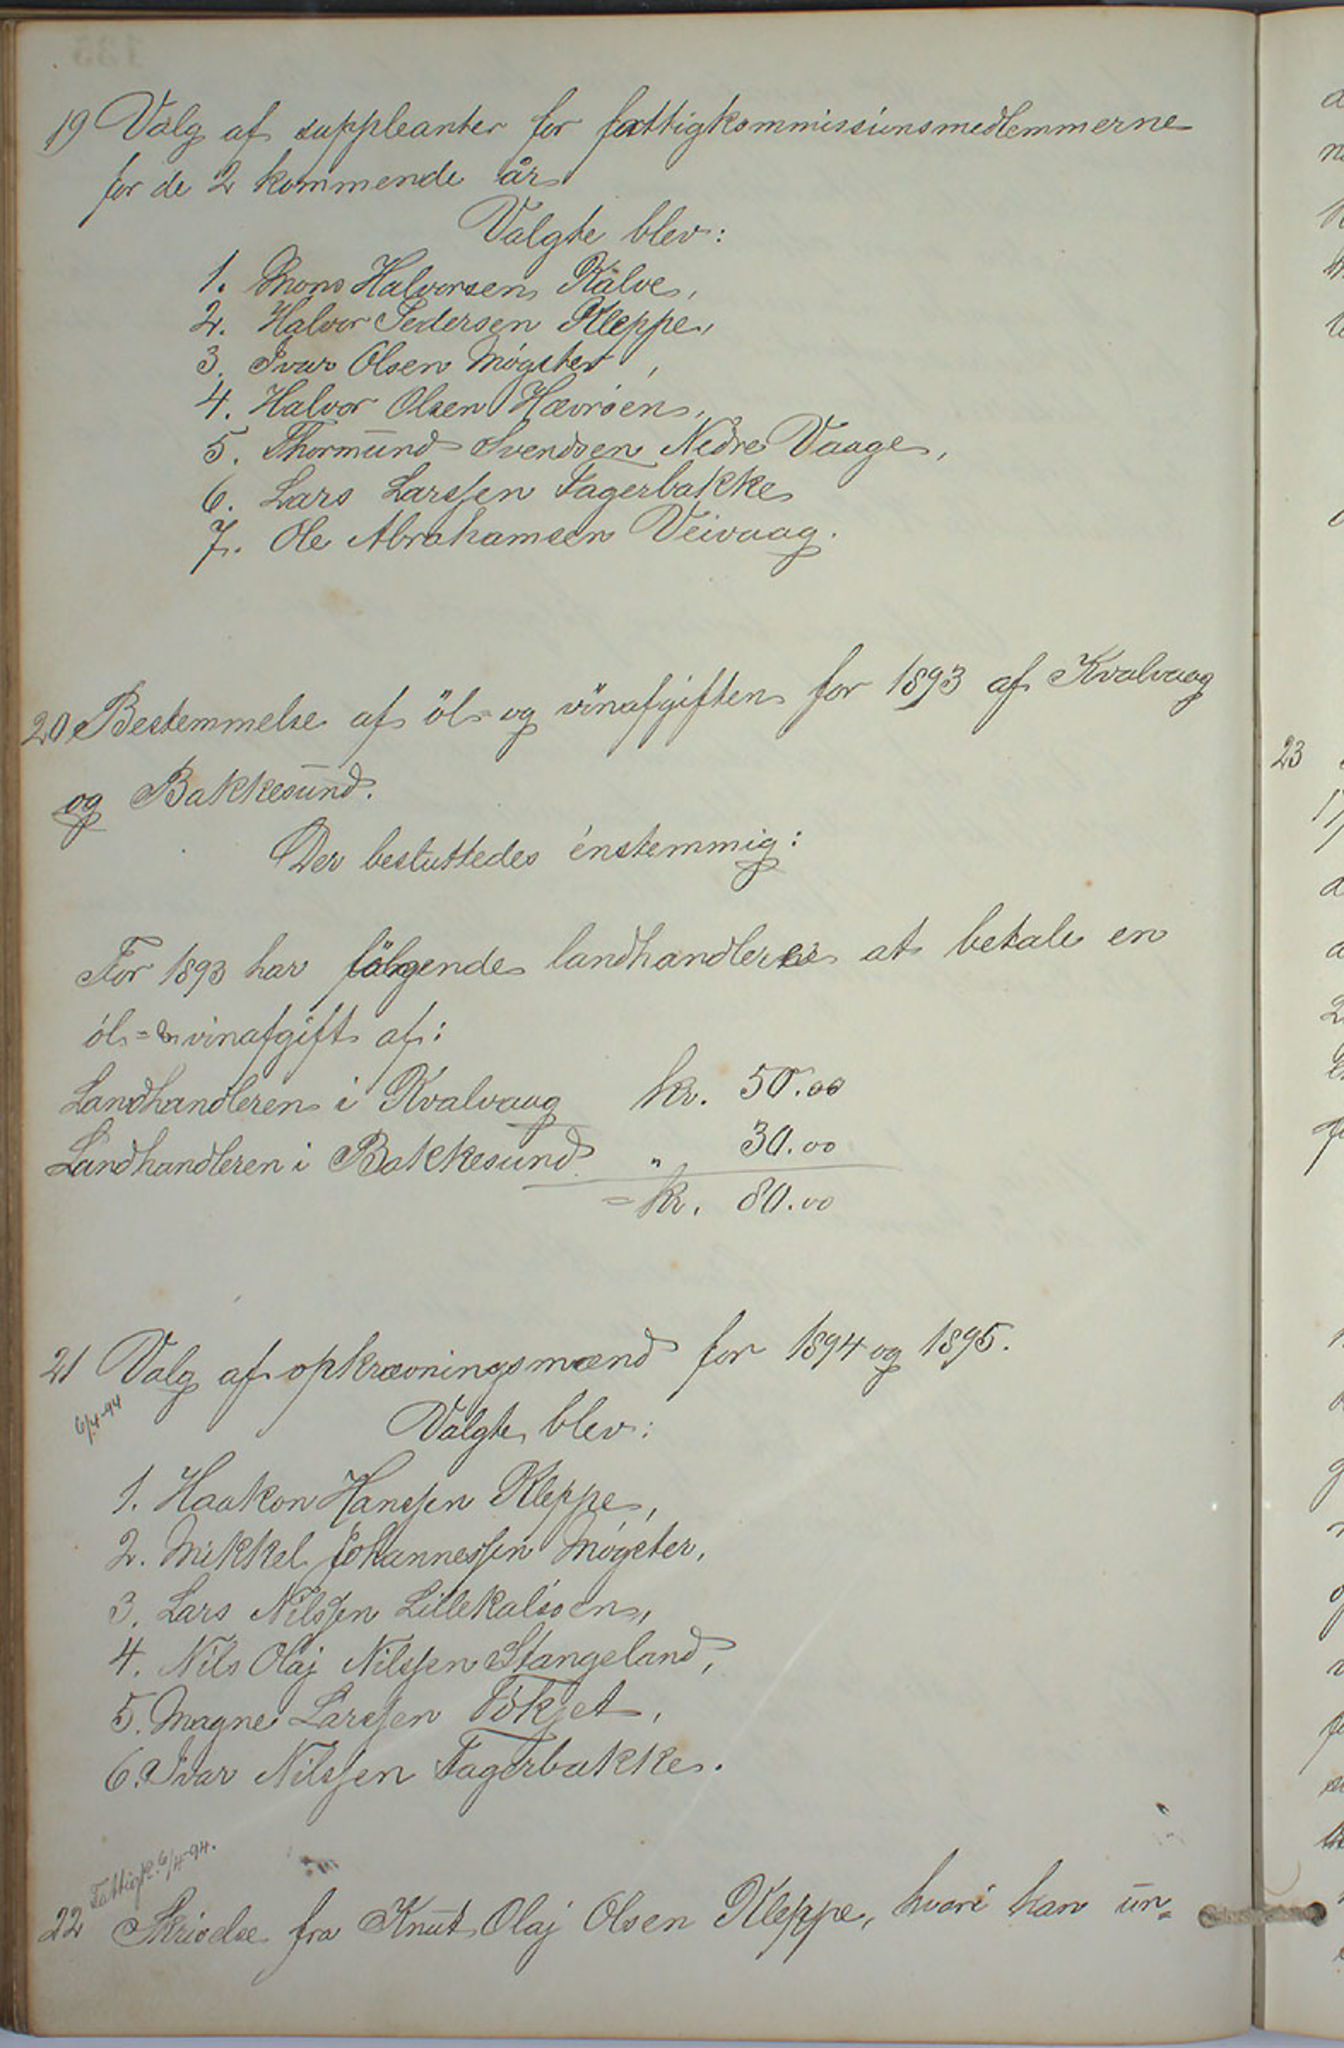 19 Valg af suppleanter for fattigkommissionsmedlemmerne
for de 2 kommende år
Valgte blev:
1. Mons Halvorsen Kalve,
2. Halvor Pedersen Kleppe,
3. Ivar Olsen Møgster,
4. Halvor Olsen Hævrøen,
5. Thormund Svendsen Nedre Vaage,
6. Lars Larssen Fagerbakke
7. Ole Abrahamsen Veivaag.
20 Bestemmelse af øl- og vinafgiften for 1893 af Kvalvaag
og Bakkesund.
Der besluttedes énstemmig:
For 1893 har følgende landhandlere at betale en
øl- & vinafgift af:
Landhandleren i Kvalvaag kr. 50.00
Landhandleren i Bakkesund " 30.00
= kr. 80.00
21 Valg af opkrævningsmænd for 1894 og 1895.
6/4-94
Valgte blev:
1. Haakon Hanssen Kleppe,
2. Mikkel Johannessen Møgster,
3. Lars Nilssen Lillekalsøen,
4. Nils Olaj Nilssen Stangeland,
5. Magne Larssen Tøkjet,
6. Ivar Nilssen Fagerbakke.
Fattigk. 6/4-94.
22 Skrivelse fra Knut Olaj Olsen Kleppe, hvori han un-
23